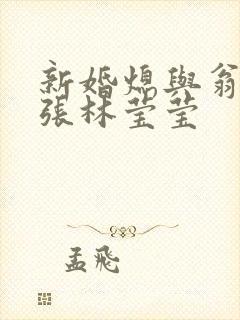 新婚熄與翁
張林莹莹
孟飛